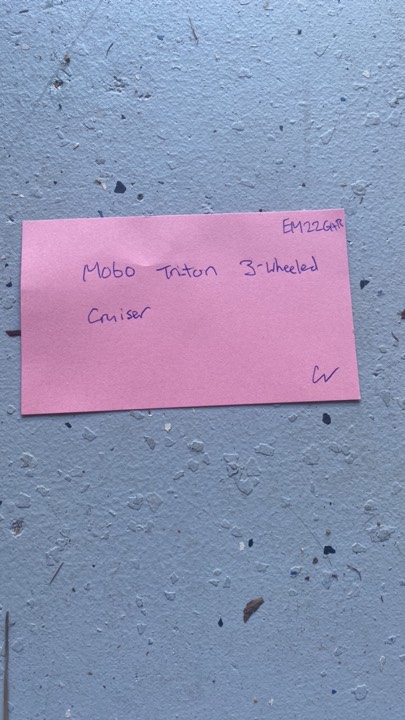 EM22GAR
Mobo Triton 3-Wheeled
Cruiser
CV